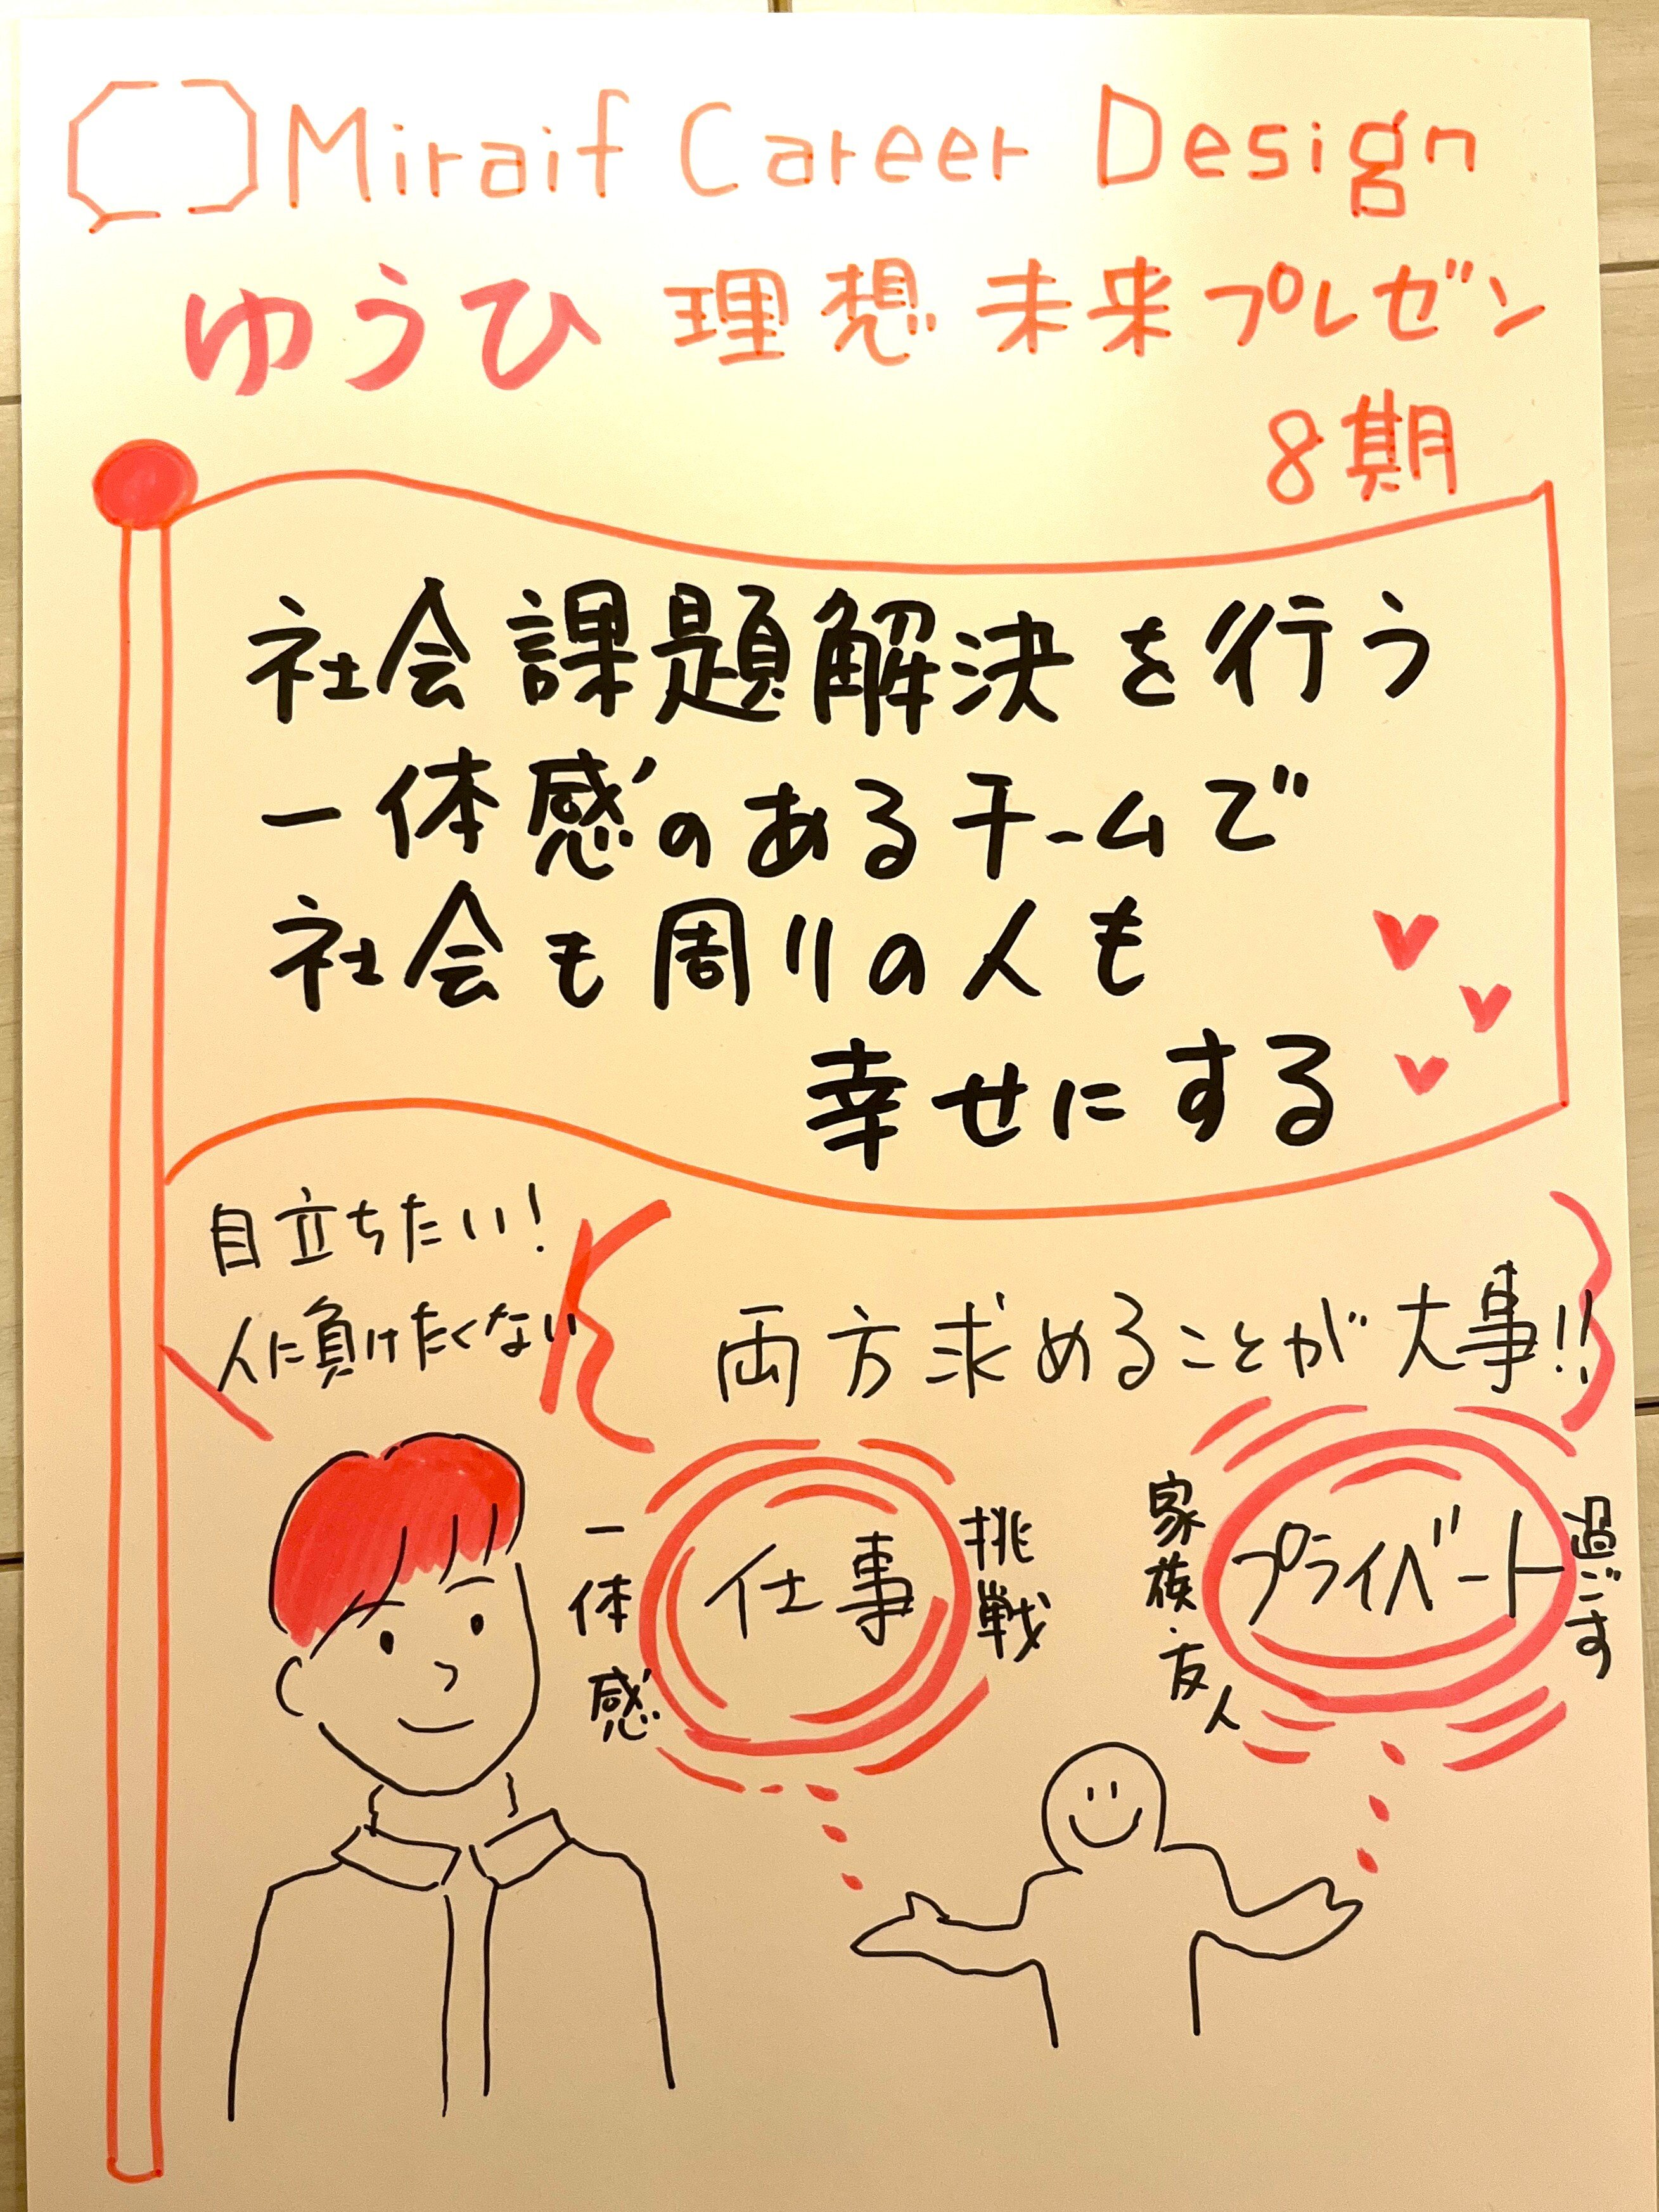 Miraif Career Design
ゆうひ 理想未来プレゼン
8期
社会課題解決を行う
一体感のあるチームで
社会も周りの人も
幸せにする
目立ちたい!
人に負けたくない
両方求めることが大事!!
一体感
仕事
挑戦
家族・友人
プライベート
過ごす